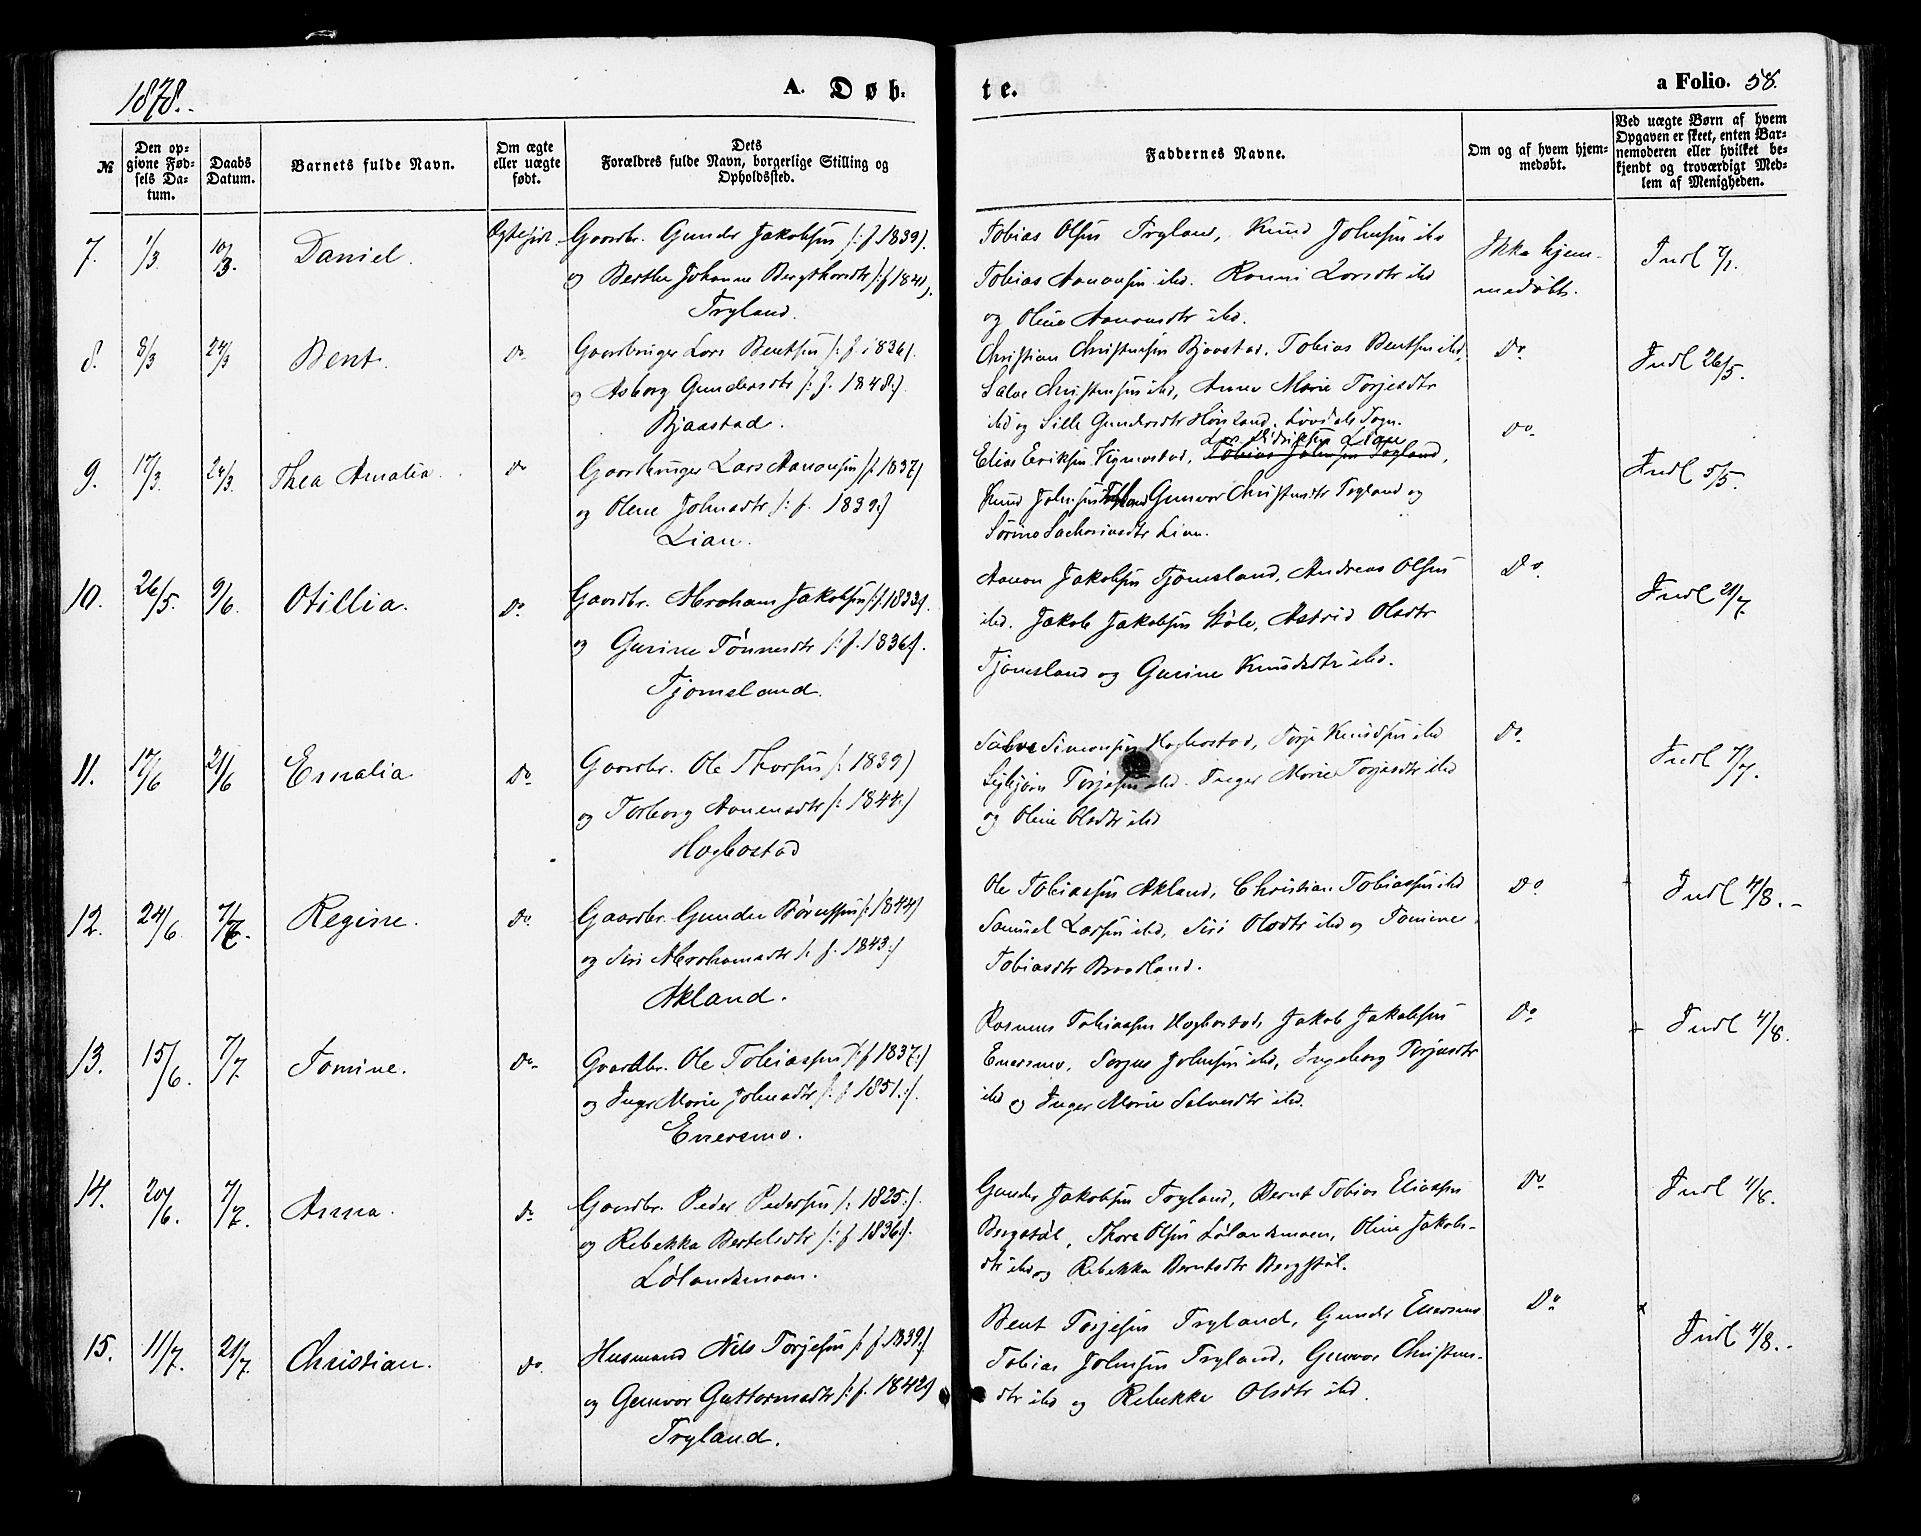 1878.
A. Døb-
te.
a Folio. 58.
№
Den opgivne Fødsels Datum.
Daabs Datum.
Barnets fulde Navn.
Om ægte eller uægte født.
Dets Forældres fulde Navn, borgerlige Stilling og Opholdssted.
Faddernes Navne.
Om og af hvem hjemmedøbt.
Ved uægte Børn af hvem Opgaven er skeet, enten Barnemoderen eller hvilket bekjendt og troværdigt Medlem af Menigheden.
7. 1/3 10/3. Daniel. Gaardbr. Gunder Jakobsen /: f. 1839).
og Berthe Johanne Bergthorsdtr /: f 1841).
Tryland.
Tobias Olsen Tryland, Knud Johnsen ibd
Tobias Aanonsen ibd. Ronni Larsdtr ibd
og Oline Aanonsdtr ibd.
Ikke hjem-
medøbt.
Indl
8. 8/3 24/3 Bent. Do Gaardbruger Lars Bentsen /: f. 1836/.
og Asborg Gundersdtr /: f. 1848:/
Bjaastad.
Christian Christensen Bjaastad, Tobias Bentsen ibd,
Salve Christensen ibd, Anne Marie Torjesdtr
ibd og Sille Gundersdtr Sogn.
Do
Indl 26/5.
9. 17/3. 24/3. Thea Amalia. Do Gaardbruger Lars Aanonsen /: f 1837/
og Olene Johnsdtr /: f. 1839:/
Lian.
Lian
Elias Eriksen Vigmostad, Tobias Johnsen Tryland,
Knud Johnsen Tryland Gunvor Christensdtr Tryland og
Sørine Sachariasdtr Lian.
Do
Indl 5/5.
10. 26/5. 9/6. Otillia. Do Gaardbr. Abraham Jakobsen /: f. 1833/.
og Gurine Tønnesdtr /: f. 1836/.
Tjomsland.
Aanon Jakobsen Tjomsland, Andreas Olsen
ibd. Jakob Jakobsen Støle, Astrid Olsdtr
Tjomsland og Gurine Knudsdtr ibd.
Do
Indl 21/7
11. 17/6 21/6 Emalia Do Gaardbr. Ole Thorsen /: 1839)
og Torborg Aanensdtr /: 1844:/
Hogbostad
Salve Simonsen Hogbostad, Torje Knudsen ibd
Torjesen ibd. Inger Marie Torjesdtr ibd
og Oline Olsdtr ibd
Do
Indl 7/7.
12. 24/6. 7/7. Regine. Do Gaardbr. Gunder /: 1844)
og Siri Abrahamsdtr /: f. 1843:/
Akland.
Ole Tobiassen Akland, Christian Tobiassen ibd
Samuel Larsen ibd, Siri Olsdtr ibd og Tomine
Tobiasdtr Bradland.
Do
Indl 4/8.
13. 15/6. 7/7. Tomine. Do Gaardbr. Ole Tobiassen /: f 1837:/
og Inger Marie Johnsdtr /: f 1851:/.
Enersmo.
Rasmus Tobiassen Hogbostad, Jakob Jakobsen
Enersmo, Johnsen ibd, Ingeborg Torjusdtr
ibd og Inger Marie Salvesdtr ibd.
Do
Indl 4/8.
14. 20/6. 7/7. Anna. Do Gaardbr. Peder Pedersen /: 1825:/.
og Rebekka Bertelsdtr /: f 1836/.
Lølandsmoen.
Gunder Jakobsen Tryland, Bernt Tobias Eliassen
Bergstøl, Thore Olsen Lølandsmoen, Oline Jakobs-
dtr ibd og Rebekka Berntsdtr Bergstøl.
Do
Indl 4/8.
15. 11/7. 21/7. Christian. Do Husmand Nils Torjesen /: f 1839:/
og Gunvor Guttormsdtr /: f. 1842/
Tryland.
Bent Torjesen Tryland, Gunder Enersmo
Tobias Johnsen Tryland, Gunvor Christens-
dtr ibd og Rebekka Olsdtr ibd.
Do
Indl 4/8.